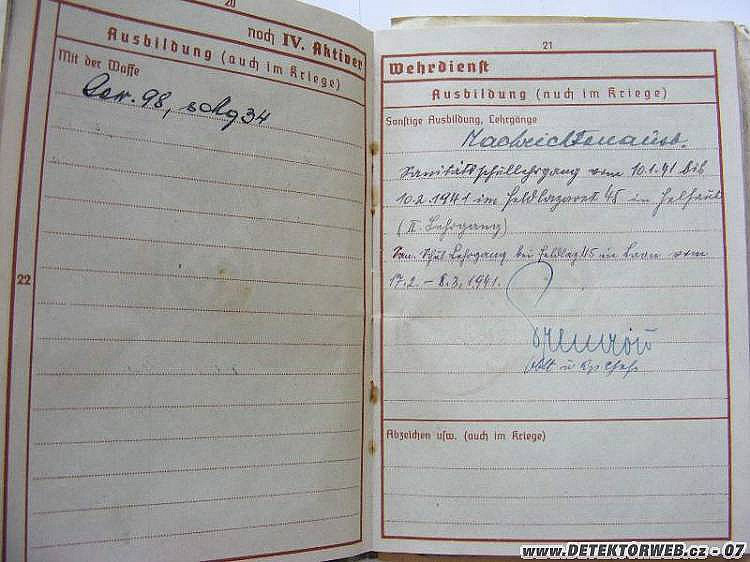 20
noch IV. Aktiver
Ausbildung (auch im Kriege)
Mit der Waffe
Gew. 98, s.M.g 34
22
21
Wehrdienst
Ausbildung (auch im Kriege)
Sonstige Ausbildung, Lehrgänge
Nachrichtenausb.
Sanitätsschullehrgang vom 10.1.41 bis
10.2.1941 im Feldlazaret 45 in
(II. Lehrgang)
San. Schul Lehrgang bei Feldlaz 45 in Laon vom
17.2. - 8.3.1941.
Oblt u Kp Chef
Abzeichen usw. (auch im Kriege)
www.DETEKTORWEB.cz - 07